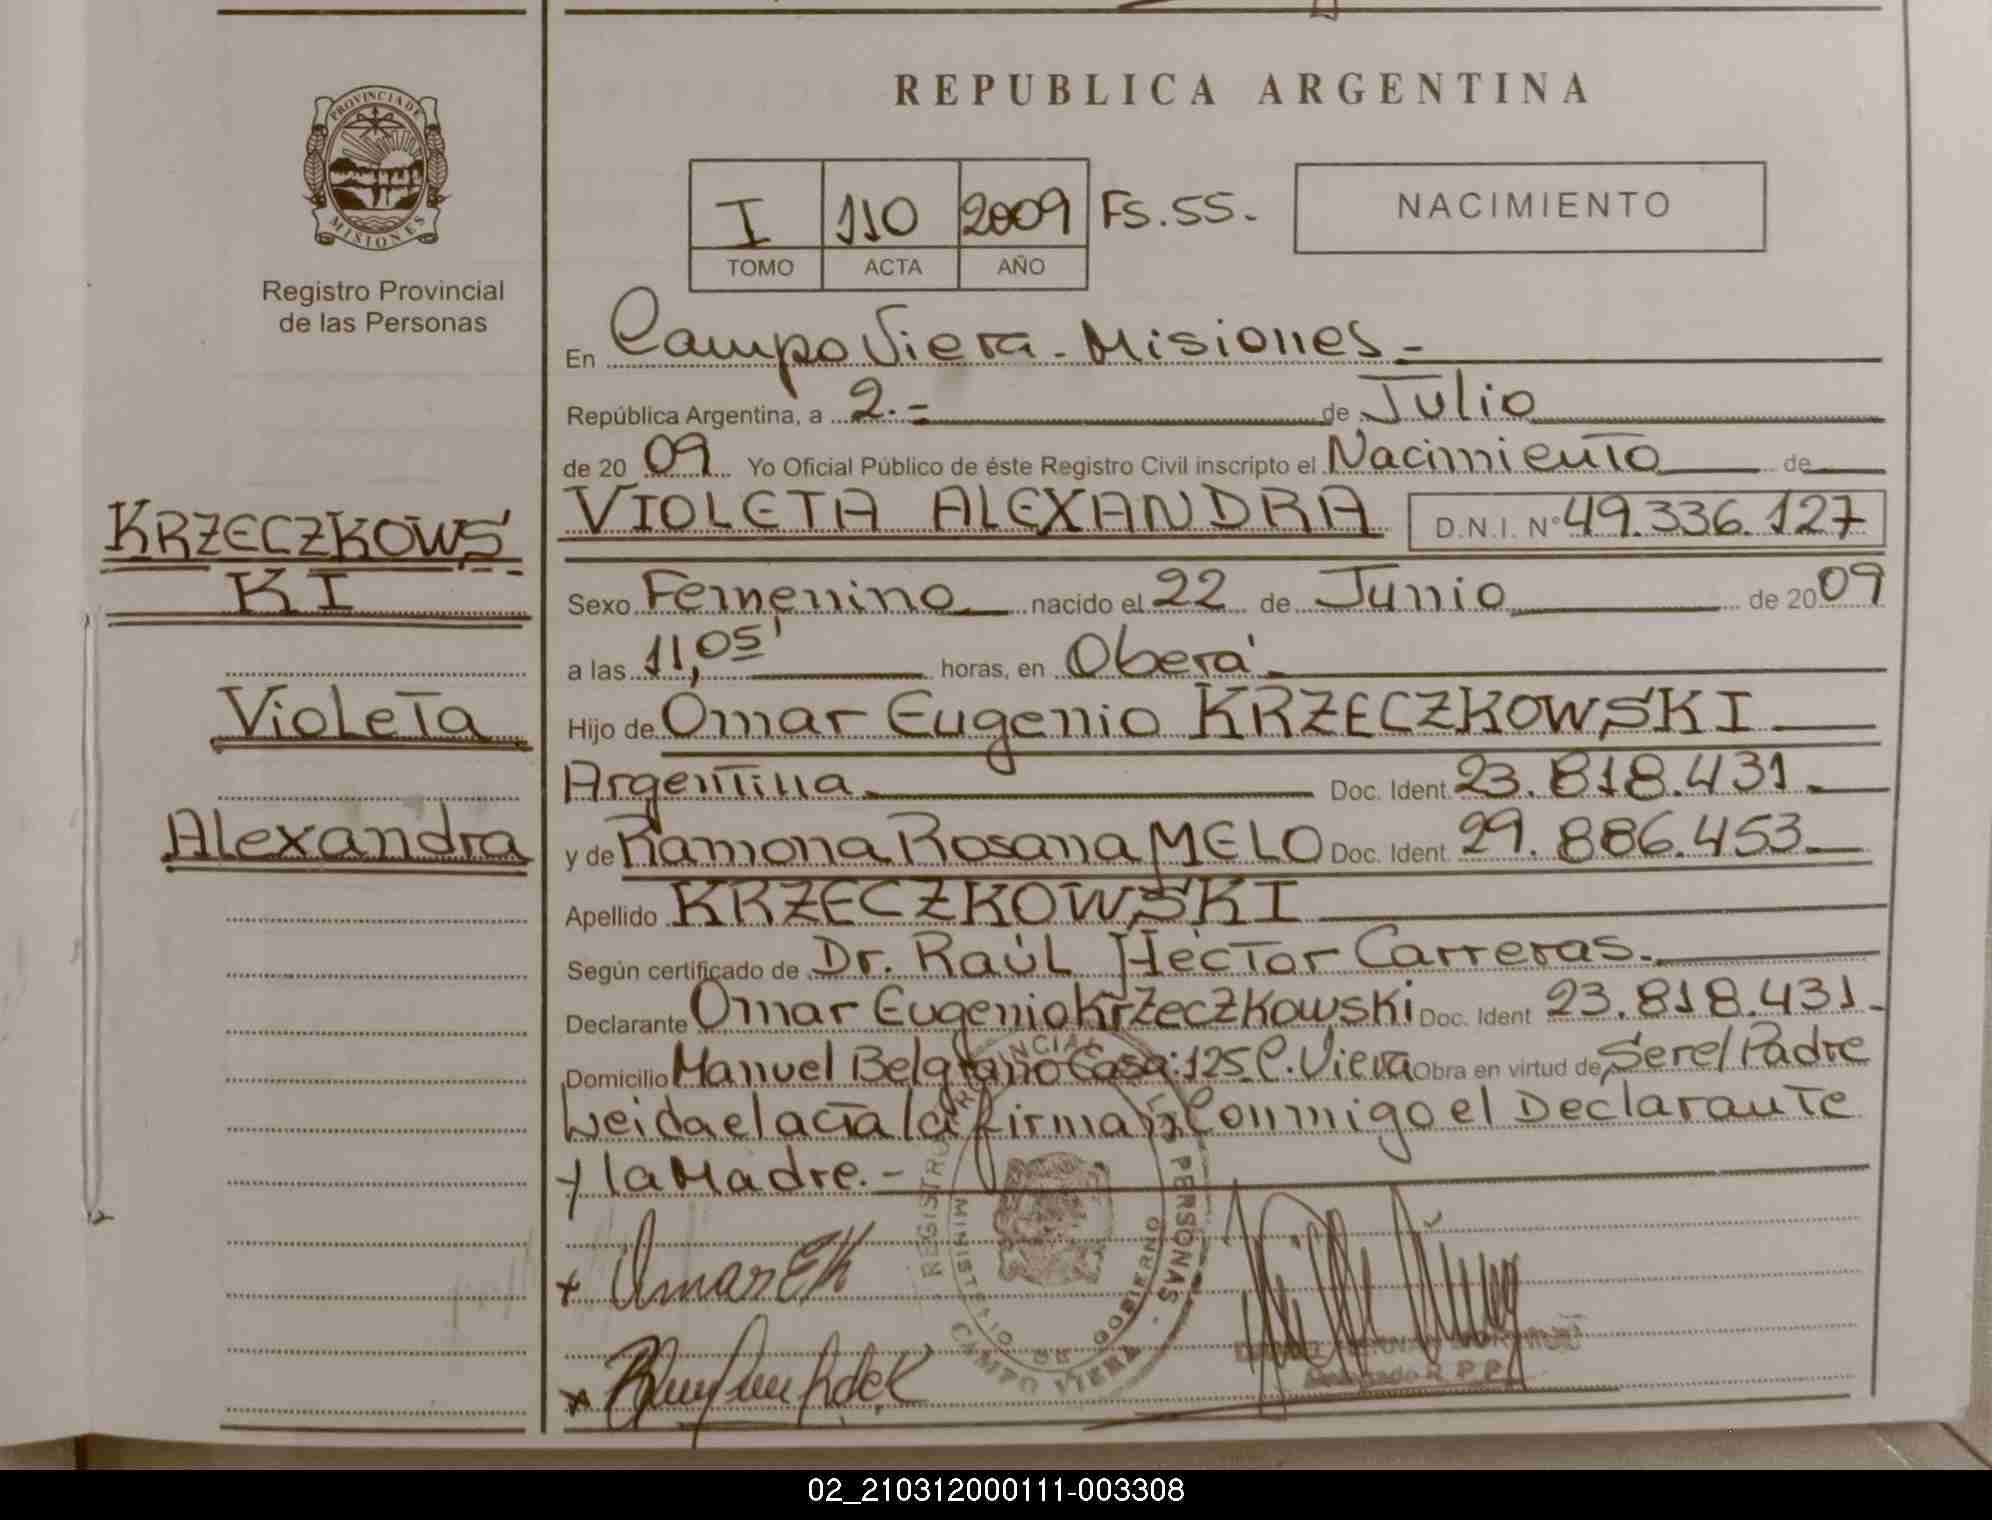 REPUBLICA ARGENTINA
PROVINCIA DE
MISIONES
Registro Provincial
de las Personas
I 110 2009 FS.55.-
TOMO ACTA AÑO
NACIMIENTO
En Campo Viera - Misiones -
República Argentina, a 2.- de Julio
de 2009 Yo Oficial Público de éste Registro Civil inscripto el Nacimiento de
KRZECZKOWS
KI
Violeta
Alexandra
VIOLETA ALEXANDRA D.N.I. N° 49.336.127
Sexo Femenino nacido el 22 de Junio de 2009
a las 11,05' horas, en Oberá
Hijo de Omar Eugenio KRZECZKOWSKI
Argentina Doc. Ident. 23.818.431
y de Ramona Rosana MELO Doc. Ident. 29.886.453
Apellido KRZECZKOWSKI
Según certificado de Dr. Raúl Héctor Carreras.
Declarante Omar Eugenio Krzeczkowski Doc. Ident 23.818.431.-
Domicilio Manuel Belgrano Casa:125 C. Viera Obra en virtud de Ser el Padre
Leida el acta la firman Conmigo el Declarante
y la Madre.-
REGISTRO PROVINCIAL PERSONAS
MINISTERIO DE GOBIERNO
CAMPO VIERA
Omar EK
Delegado R.P.P.
02_210312000111-003308